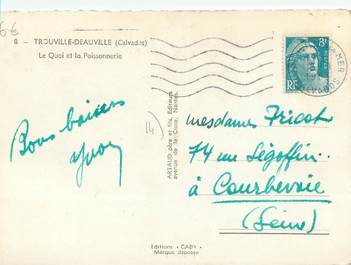 6€
8 - TROUVILLE-DEAUVILLE (Calvados)
Le Quai et la Poissonnerie
Bons baisers
Yvon
14
ARTAUD père et fils, Editeurs
avenue de la Close, Nantes
8F
RF
-MER
CALVADOS
mesdames Tricot
74 rue Ségoffin
à Courbevoie
(Seine)
Editions "GABY"
Marque déposée